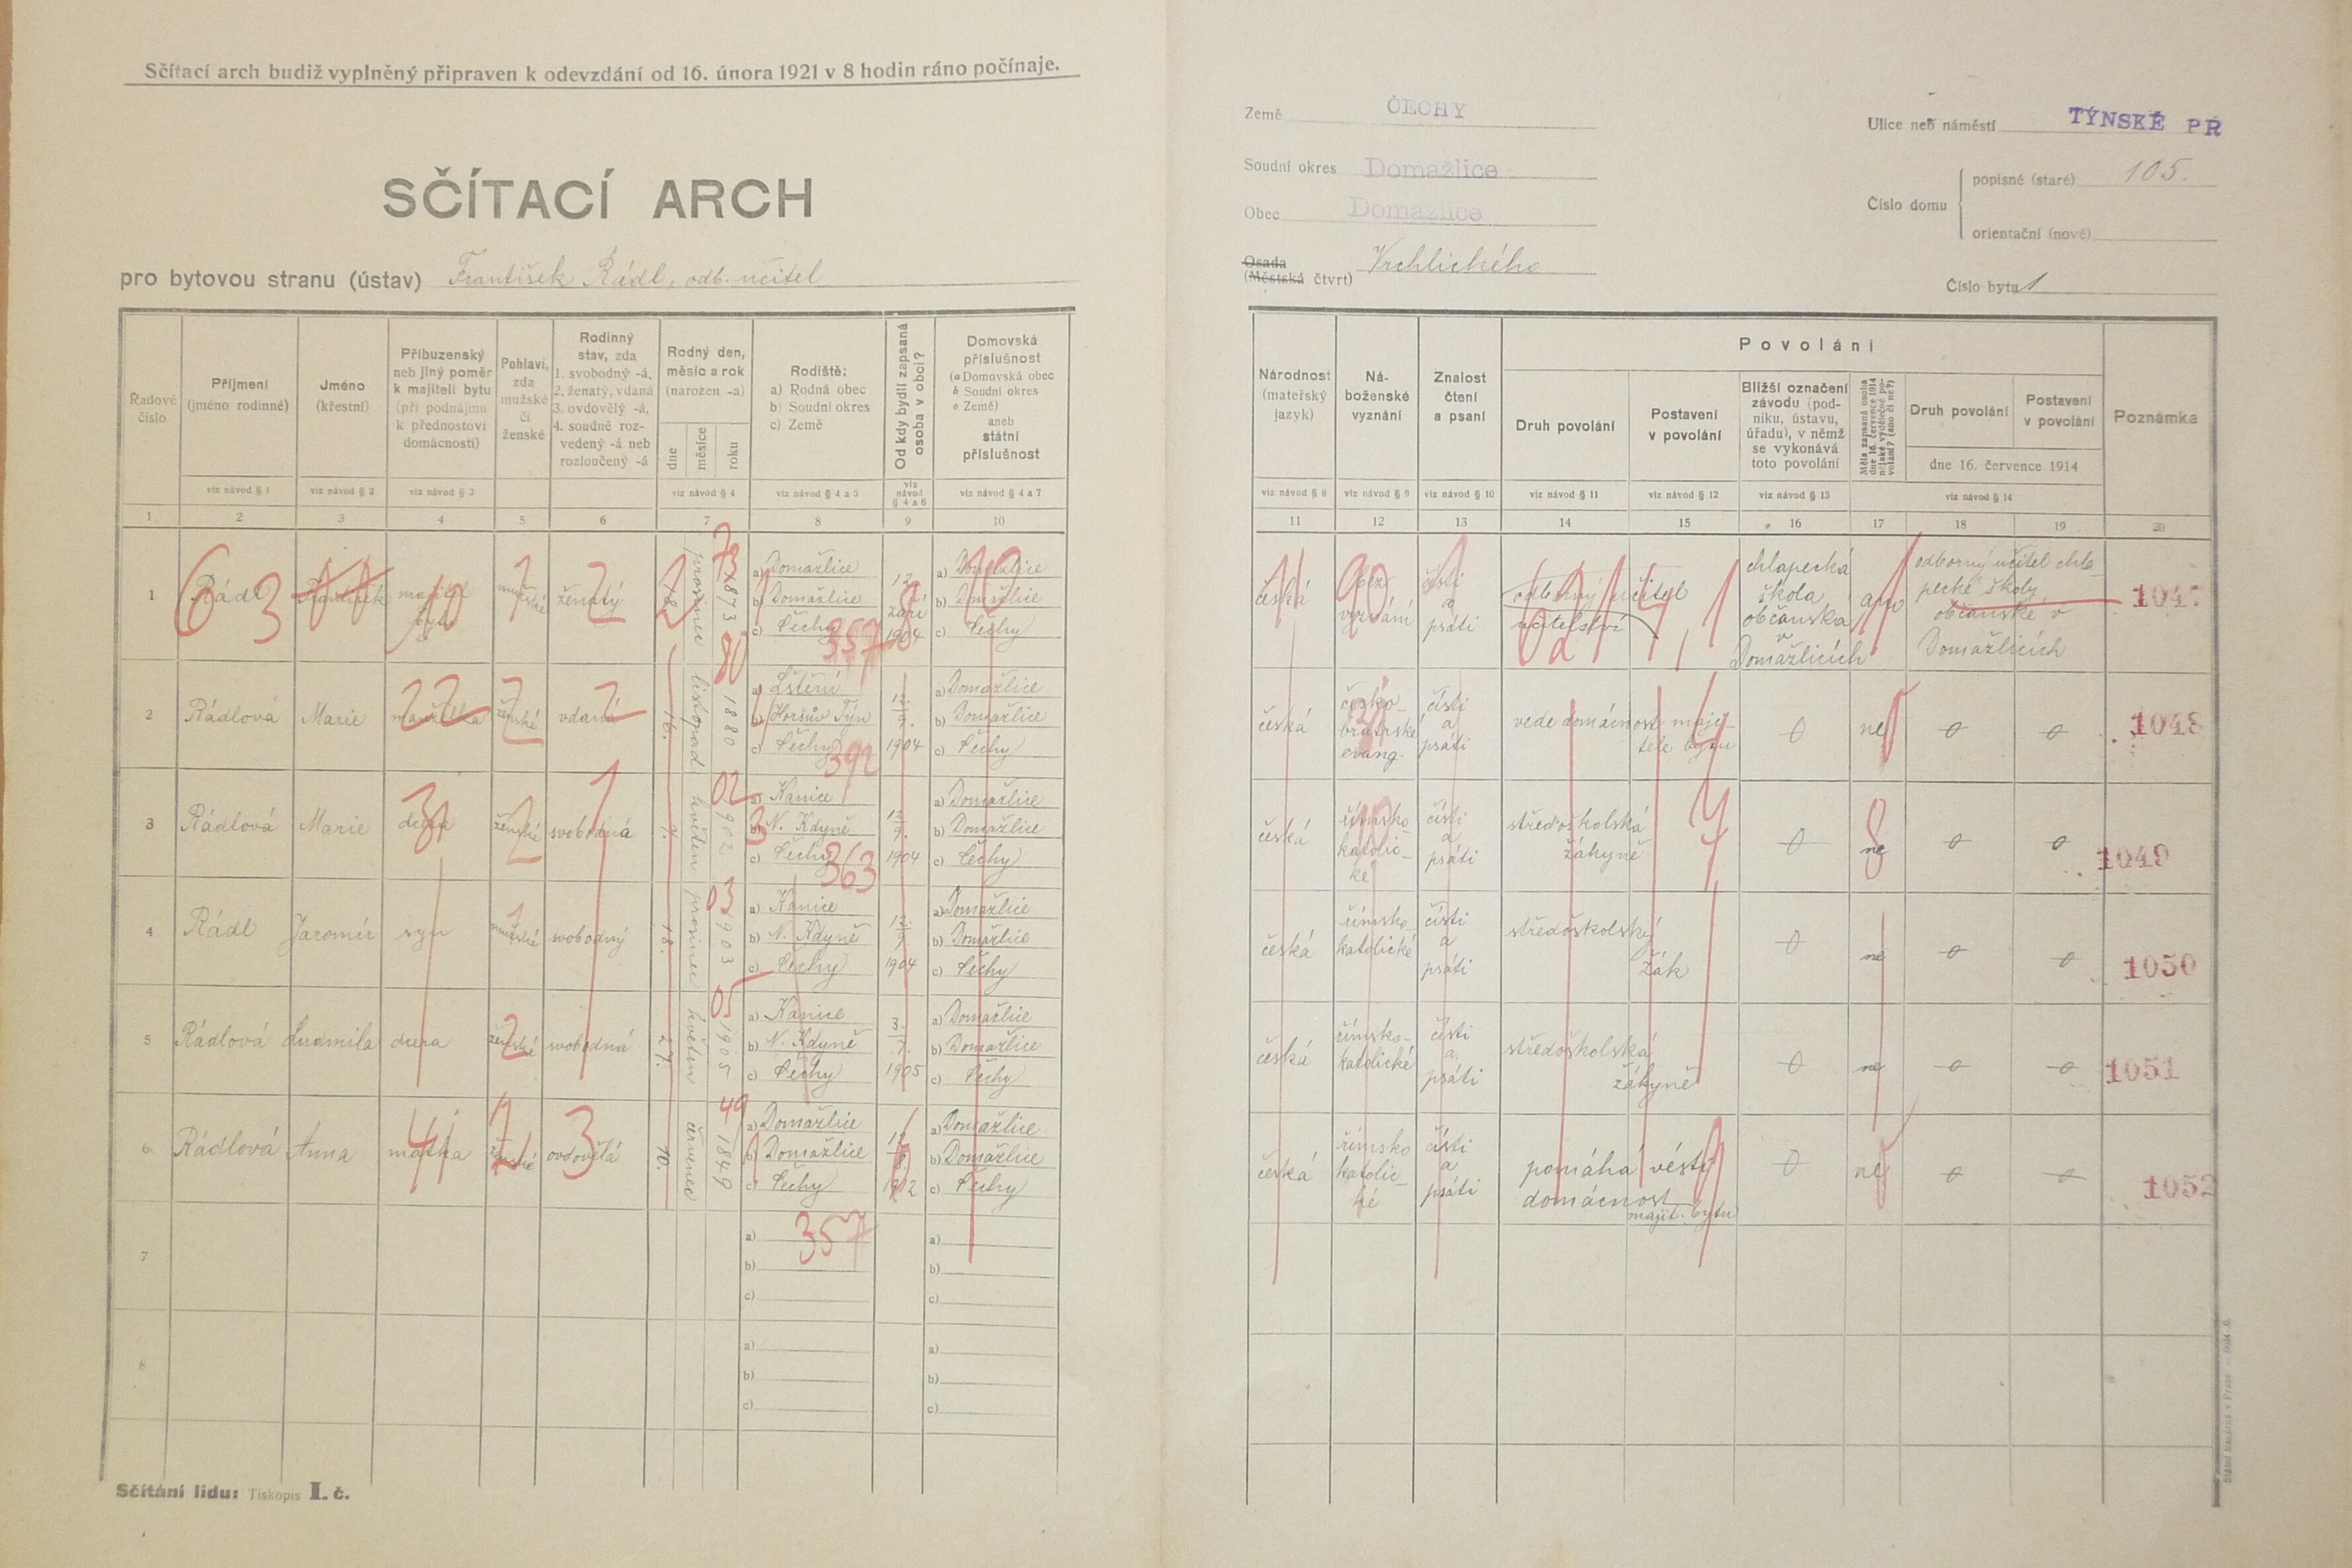 Sčítací arch budiž vyplněný připraven k odevzdání od 16. února 1921 v 8 hodin ráno počínaje.
SČÍTACÍ ARCH
pro bytovou stranu (ústav) František Rádl, odb. učitel
Země ČECHY
Soudní okres Domažlice
Obec Domažlice
Osada
(Městská čtvrť) Vrchlického
Ulice neb náměstí TÝNSKÉ PŘ
Číslo domu
popisné (staré) 105.
orientační (nové)
Číslo bytu 1
Řadové číslo
Příjmení (jméno rodinné)
Jméno (křestní)
Příbuzenský neb jiný poměr k majiteli bytu (při podnájmu k přednostovi domácnosti)
Pohlaví, zda mužské či ženské
Rodinný stav, zda 1. svobodný -á, 2. ženatý, vdaná 3. ovdovělý -á, 4. soudně rozvedený -á neb rozloučený -á
Rodný den, měsíc a rok (narozen -a)
dne měsíce roku
Rodiště: a) Rodná obec b) Soudní okres c) Země
Od kdy bydlí zapsaná osoba v obci?
Domovská příslušnost (a Domovská obec b Soudní okres c Země) aneb státní příslušnost
Národnost (mateřský jazyk)
Náboženské vyznání
Znalost čtení a psaní
Povolání
Druh povolání
Postavení v povolání
Bližší označení závodu (podniku, ústavu, úřadu), v němž se vykonává toto povolání
Měla zapsaná osoba dne 16. července 1914 nějaké výdělečné povolání? (ano či ne?)
Druh povolání
Postavení v povolání
dne 16. července 1914
Poznámka
viz návod § 1 viz návod § 2 viz návod § 3 viz návod § 4 viz návod § 4 a 5 viz návod § 4 a 6 viz návod § 4 a 7
viz návod § 8 viz návod § 9 viz návod § 10 viz návod § 11 viz návod § 12 viz návod § 13 viz návod § 14
1 2 3 4 5 6 7 8 9 10
11 12 13 14 15 16 17 18 19 20
1 Rádl František majitel bytu mužské ženatý prosinec 1873 a) Domažlice b) Domažlice c) Čechy 12. září 1904 a) Domažlice b) Domažlice c) Čechy
česká bez vyznání čísti a psáti odborný učitel učitelství chlapecká škola občanská v Domažlicích ano odborný učitel chlapecké školy občanské v Domažlicích 1047
2 Rádlová Marie manželka ženské vdaná 16. listopad 1880 a) Lštění b) Horšův Týn c) Čechy 12. 9. 1904 a) Domažlice b) Domažlice c) Čechy
česká českobratrské evang. čísti a psáti vede domácnost majitele bytu 0 ne 0 0 1048
3 Rádlová Marie dcera ženské svobodná květen 1902 a) Kanice b) N. Kdyně c) Čechy 12. 9. 1904 a) Domažlice b) Domažlice c) Čechy
česká římsko katolické čísti a psáti středoškolská žákyně 0 ne 0 0 1049
4 Rádl Jaromír syn mužské svobodný 18. prosinec 1903 a) Kanice b) N. Kdyně c) Čechy 12. 9. 1904 a) Domažlice b) Domažlice c) Čechy
česká římsko katolické čísti a psáti středoškolský žák 0 ne 0 0 1050
5 Rádlová Ludmila dcera ženské svobodná 27. květen 1905 a) Kanice b) N. Kdyně c) Čechy 3. 7. 1905 a) Domažlice b) Domažlice c) Čechy
česká římsko-katolické čísti a psáti středoškolská žákyně 0 ne 0 0 1051
6 Rádlová Anna matka ženské ovdovělá 10. červenec 1849 a) Domažlice b) Domažlice c) Čechy a) Domažlice b) Domažlice c) Čechy
česká římsko katolické čísti a psáti pomáhá vésti domácnost majit. bytu 0 ne 0 0 1052
357
7 a) b) c) a) b) c)
8 a) b) c) a) b) c)
Sčítání lidu: Tiskopis I. č.